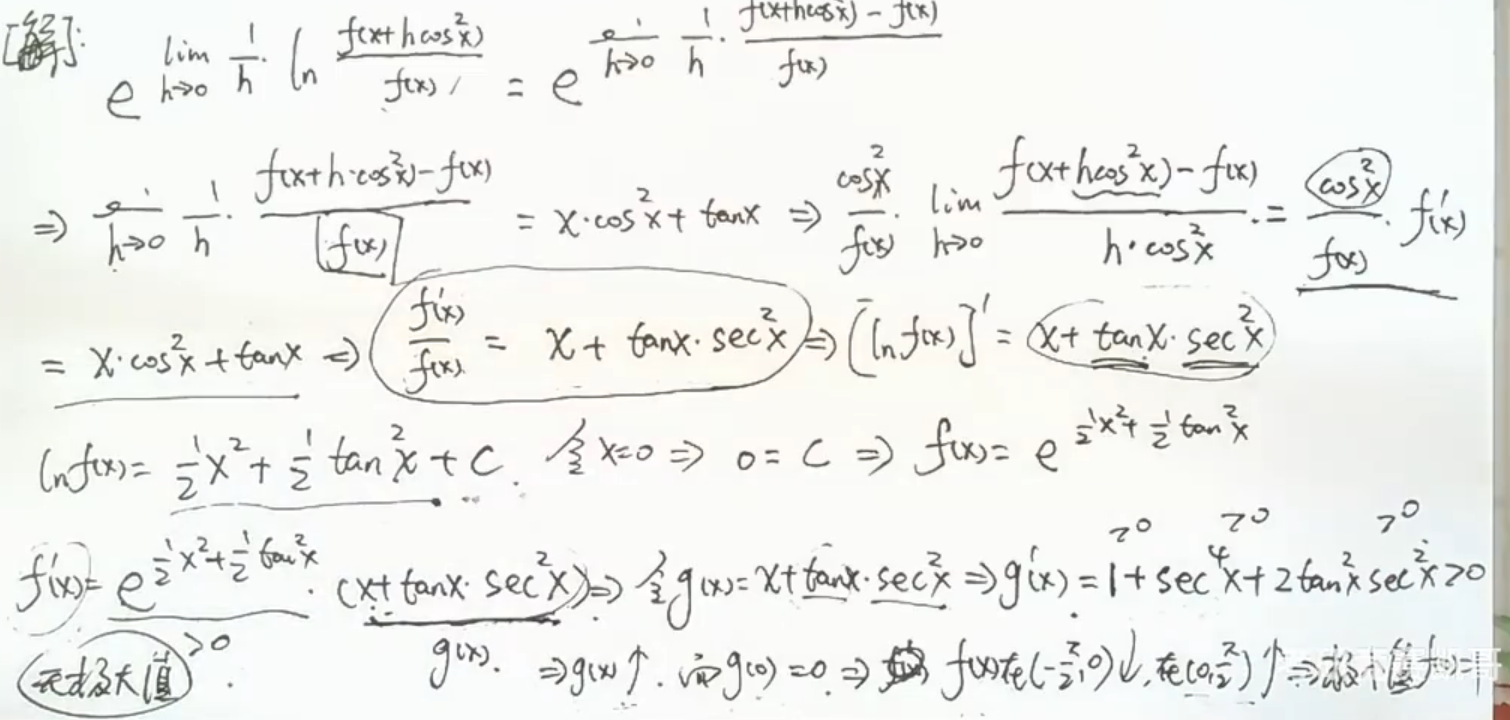 [解]: e^{lim_{h→0} 1/h · ln f(x+hcos²x)/f(x)} = e^{lim_{h→0} 1/h · (f(x+hcos²x) - f(x))/f(x)}
⇒ lim_{h→0} 1/h · (f(x+h·cos²x) - f(x))/f(x) = x·cos²x + tanx ⇒ cos²x/f(x) · lim_{h→0} (f(x+hcos²x) - f(x))/(h·cos²x) = cos²x/f(x) · f'(x)
= x·cos²x + tanx ⇒ f'(x)/f(x) = x + tanx·sec²x ⇒ [ln f(x)]' = x + tanx·sec²x
ln f(x) = 1/2 x² + 1/2 tan²x + C. 令 x=0 ⇒ 0 = C ⇒ f(x) = e^{1/2 x² + 1/2 tan²x}
f'(x) = e^{1/2 x² + 1/2 tan²x} · (x + tanx·sec²x) ⇒ 令 g(x) = x + tanx·sec²x ⇒ g'(x) = 1 + sec⁴x + 2tan²x sec²x > 0
>0 >0 >0
无极大值 >0 g(x). ⇒ g(x)↑. 而 g(0) = 0 ⇒ f(x)在(-π/2,0)↓, 在(0,π/2)↑ ⇒